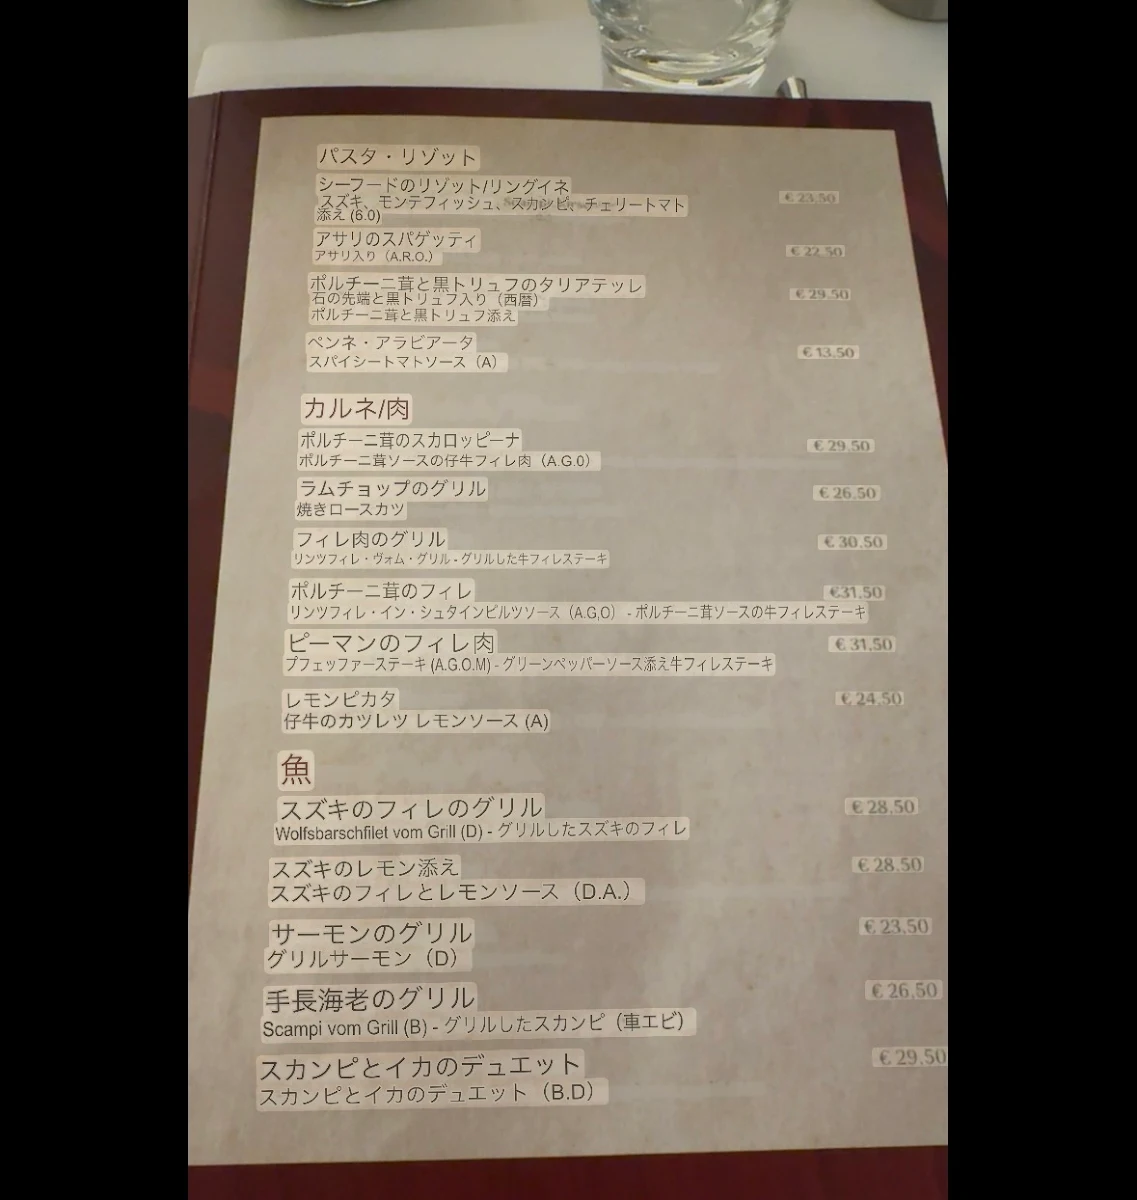 パスタ・リゾット
シーフードのリゾット/リングイネ
スズキ、モンテフィッシュ、スカンピ、チェリートマト € 23.50
添え (6.0)
アサリのスパゲッティ € 22.50
アサリ入り（A.R.O.）
ポルチーニ茸と黒トリュフのタリアテッレ
石の先端と黒トリュフ入り（西暦） € 29.50
ポルチーニ茸と黒トリュフ添え
ペンネ・アラビアータ € 13.50
スパイシートマトソース（A）
カルネ/肉
ポルチーニ茸のスカロッピーナ € 29.50
ポルチーニ茸ソースの仔牛フィレ肉（A.G.0）
ラムチョップのグリル € 26.50
焼きロースカツ
フィレ肉のグリル € 30.50
リンツフィレ・ヴォム・グリル - グリルした牛フィレステーキ
ポルチーニ茸のフィレ €31.50
リンツフィレ・イン・シュタインピルツソース（A.G,O） - ポルチーニ茸ソースの牛フィレステーキ
ピーマンのフィレ肉 € 31.50
プフェッファーステーキ (A.G.O.M) - グリーンペッパーソース添え牛フィレステーキ
レモンピカタ € 24.50
仔牛のカツレツ レモンソース (A)
魚
スズキのフィレのグリル € 28.50
Wolfsbarschfilet vom Grill (D) - グリルしたスズキのフィレ
スズキのレモン添え € 28.50
スズキのフィレとレモンソース（D.A.）
サーモンのグリル € 23.50
グリルサーモン（D）
手長海老のグリル € 26,50
Scampi vom Grill (B) - グリルしたスカンピ（車エビ）
スカンピとイカのデュエット € 29.50
スカンピとイカのデュエット（B.D）